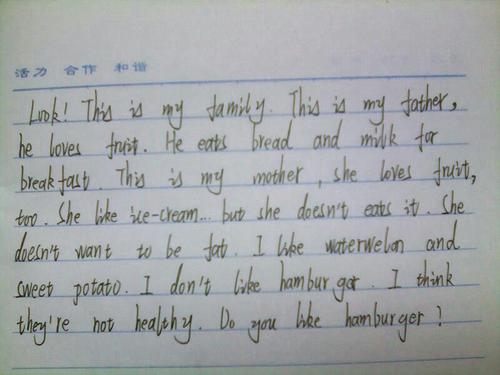 活力 合作 和谐
Look! This is my family. This is my father,
he loves fruit. He eats bread and milk for
breakfast. This is my mother, she loves fruit,
too. She like ice-cream... but she doesn't eats it. She
doesn't want to be fat. I like waterwelon and
sweet potato. I don't like hamburger. I think
they're not healthy. Do you like hamburger?